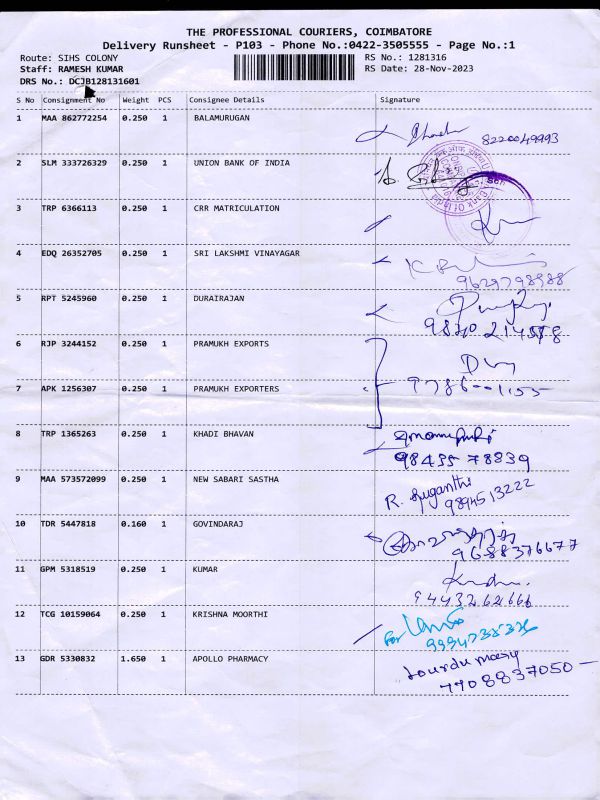 THE PROFESSIONAL COURIERS, COIMBATORE
Delivery Runsheet - P103 - Phone No.:0422-3505555 - Page No.:1
Route: SIHS COLONY
Staff: RAMESH KUMAR
DRS No.: DCJB128131601
RS No.: 1281316
RS Date: 28-Nov-2023
S No Consignment No Weight PCS Consignee Details Signature
1 MAA 862772254 0.250 1 BALAMURUGAN 8220049993
2 SLM 333726329 0.250 1 UNION BANK OF INDIA
3 TRP 6366113 0.250 1 CRR MATRICULATION
4 EDQ 26352705 0.250 1 SRI LAKSHMI VINAYAGAR
9629798988
5 RPT 5245960 0.250 1 DURAIRAJAN
6 RJP 3244152 0.250 1 PRAMUKH EXPORTS
7 APK 1256307 0.250 1 PRAMUKH EXPORTERS
8 TRP 1365263 0.250 1 KHADI BHAVAN
98455 78839
9 MAA 573572099 0.250 1 NEW SABARI SASTHA R. Suganthi
9894513222
10 TDR 5447818 0.160 1 GOVINDARAJ
9688376677
11 GPM 5318519 0.250 1 KUMAR
94432 62666
12 TCG 10159064 0.250 1 KRISHNA MOORTHI for
13 GDR 5330832 1.650 1 APOLLO PHARMACY Lourdu mary
7908837050